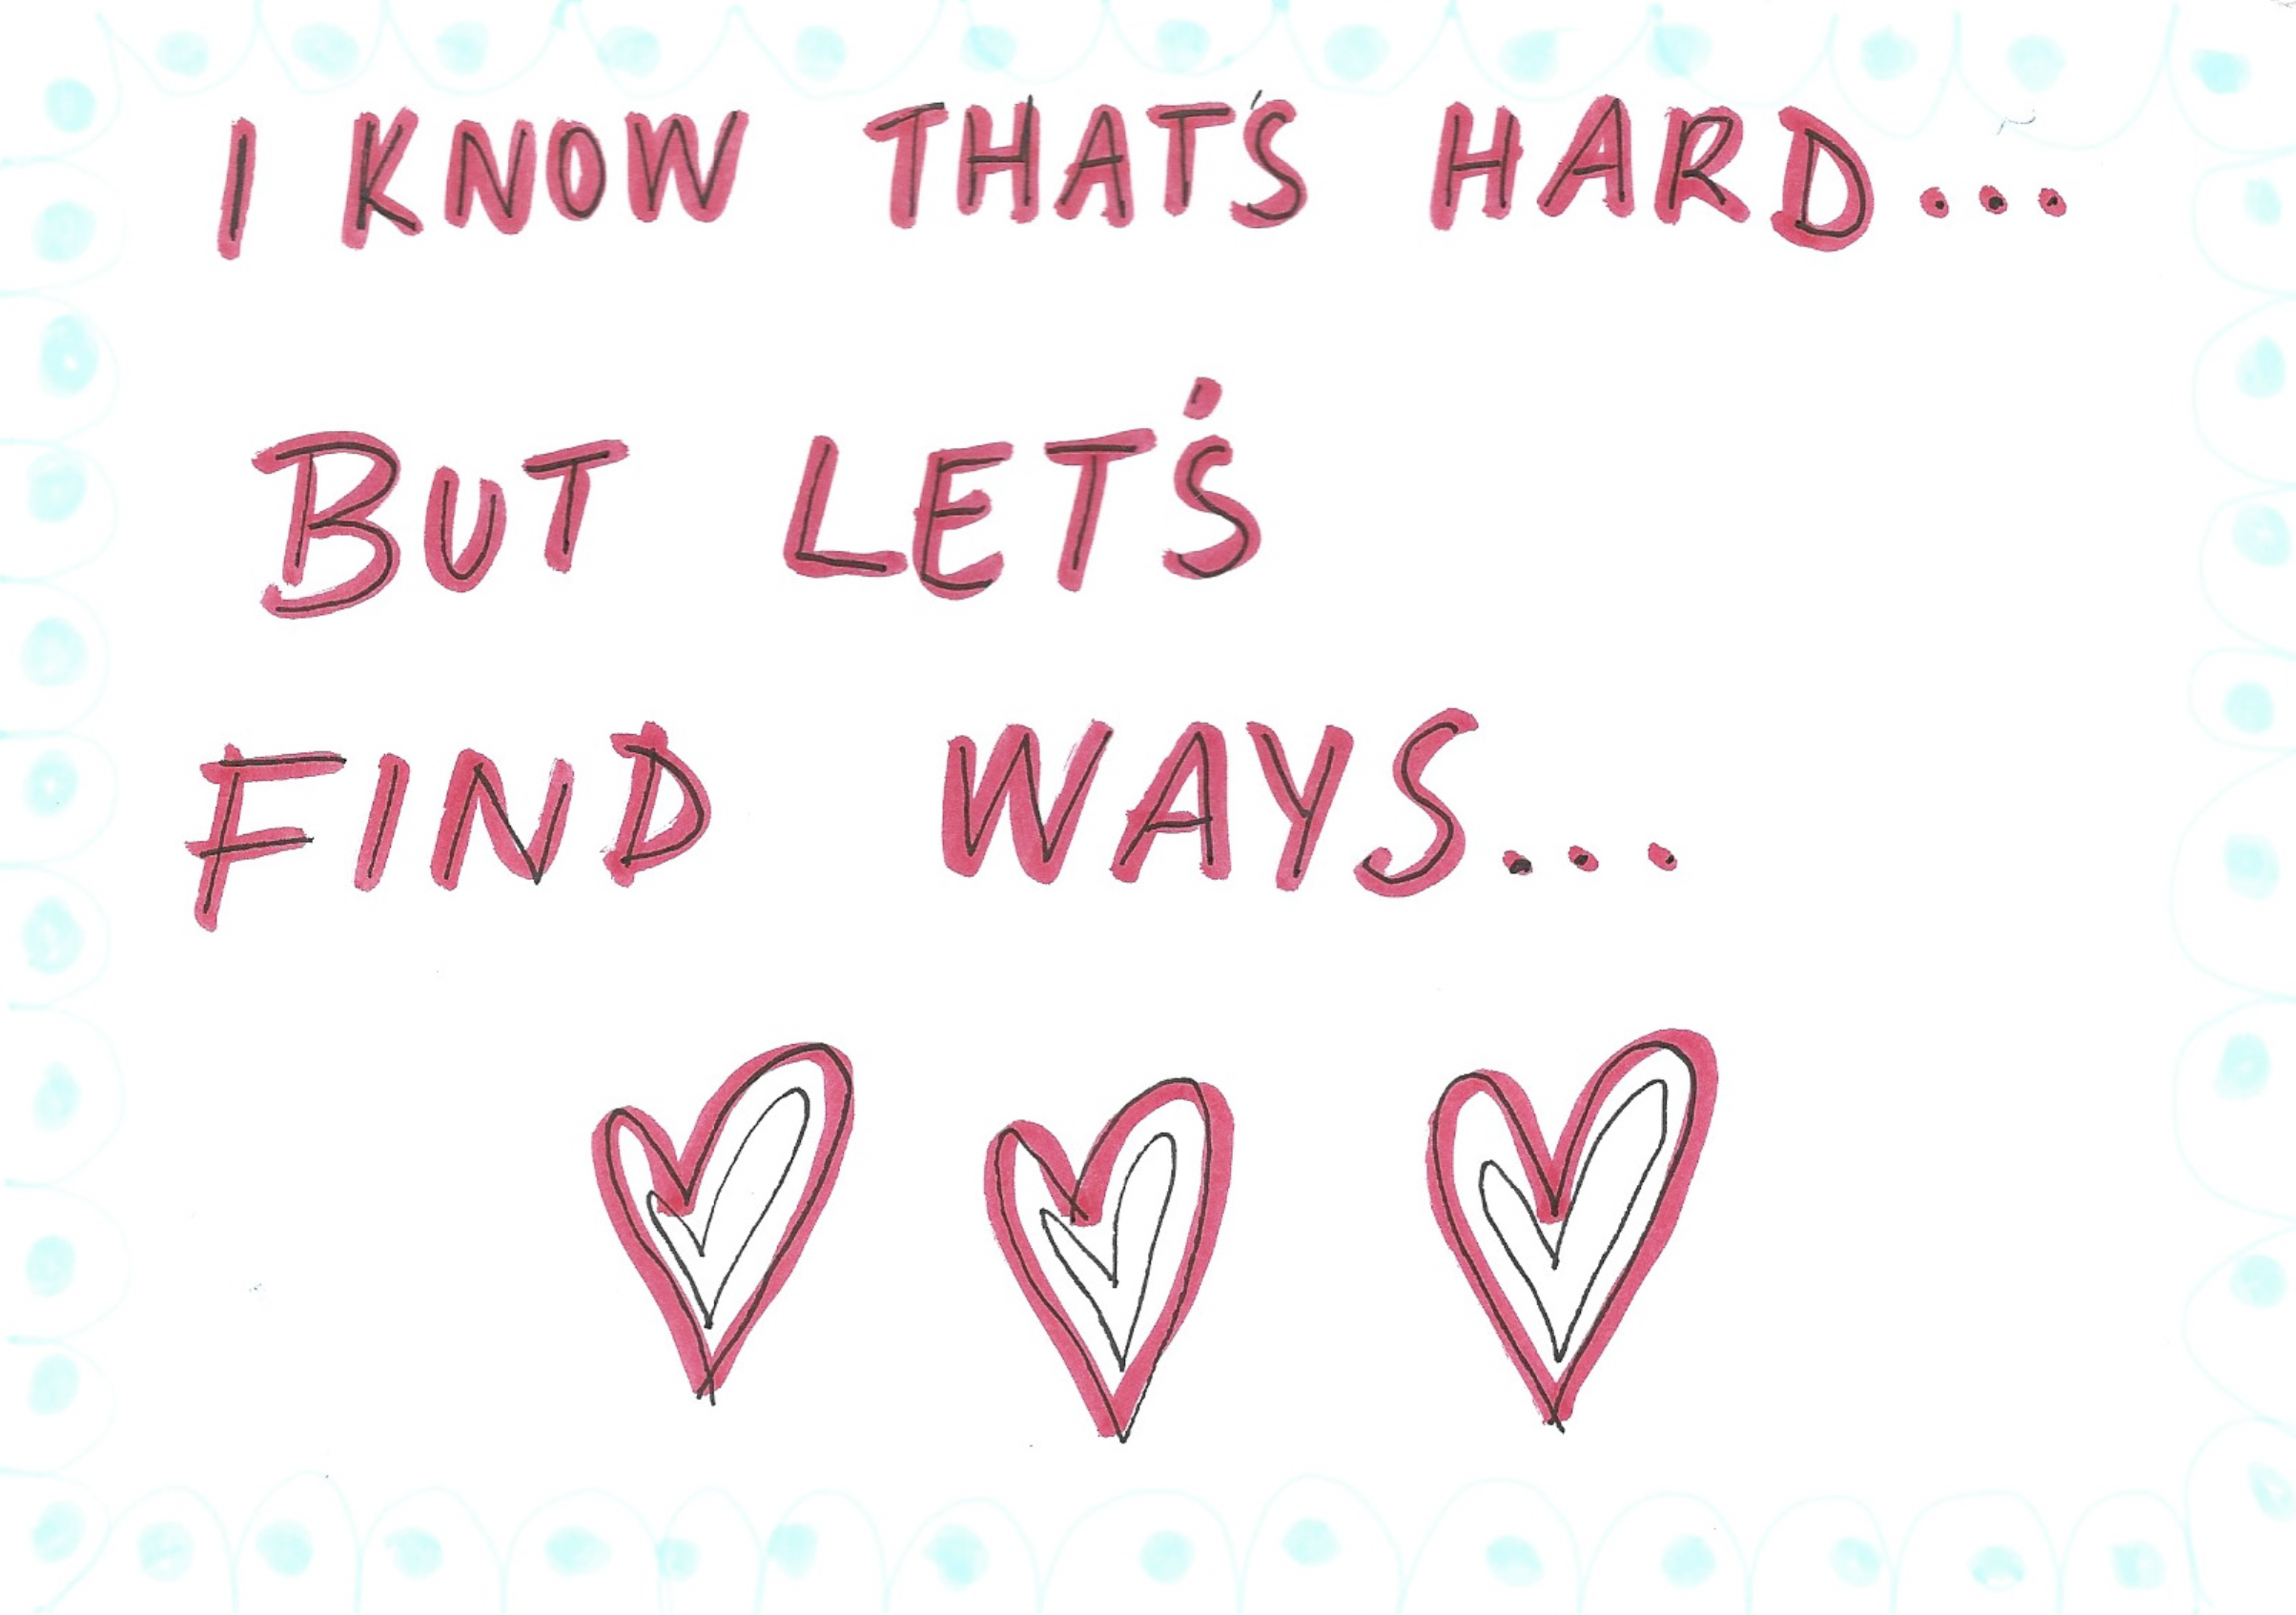 I KNOW THAT'S HARD...
BUT LET'S
FIND WAYS...